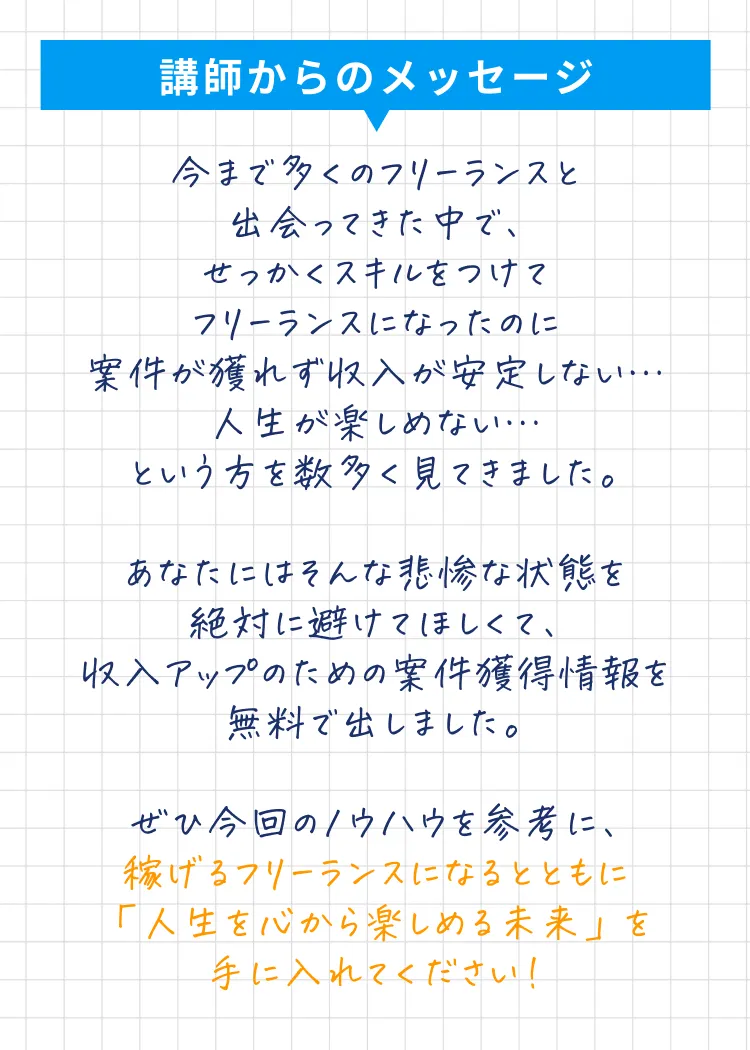 講師からのメッセージ
今まで多くのフリーランスと
出会ってきた中で、
せっかくスキルをつけて
フリーランスになったのに
案件が獲れず収入が安定しない…
人生が楽しめない…
という方を数多く見てきました。
あなたにはそんな悲惨な状態を
絶対に避けてほしくて、
収入アップのための案件獲得情報を
無料で出しました。
ぜひ今回のノウハウを参考に、
稼げるフリーランスになるとともに
「人生を心から楽しめる未来」を
手に入れてください！